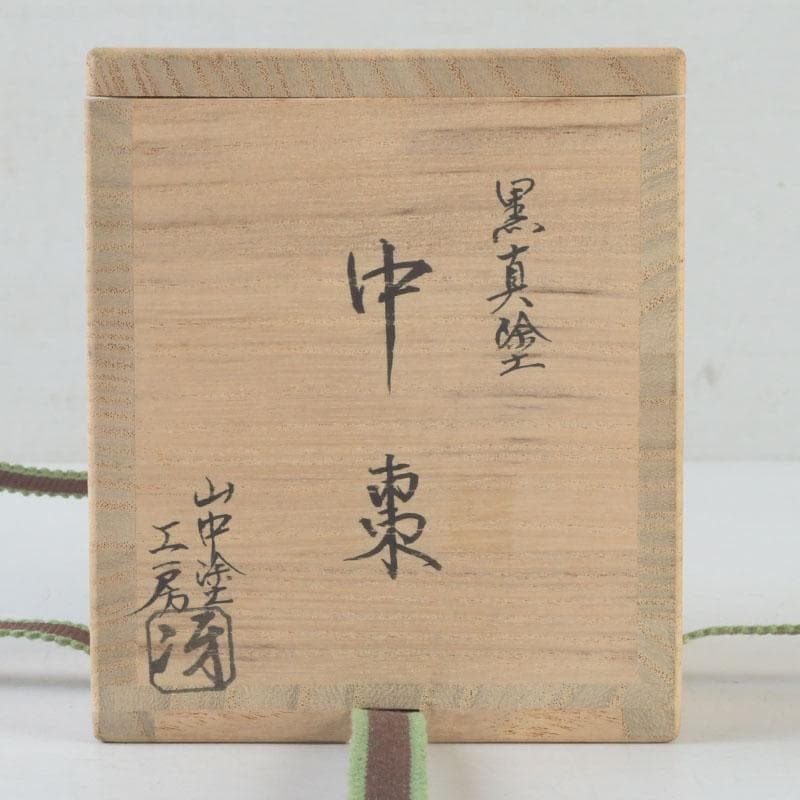 黒真塗
中棗
山中塗
工房
冴